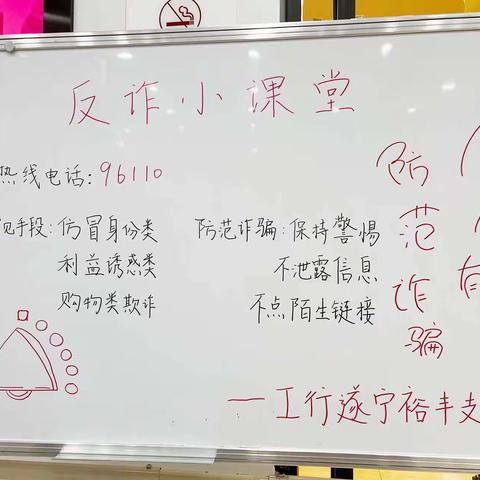 反诈小课堂
热线电话:96110
见手段:仿冒身份类
利益诱惑类
购物类欺诈
防范诈骗:保持警惕
不泄露信息
不点陌生链接
防范诈骗
—工行遂宁裕丰支